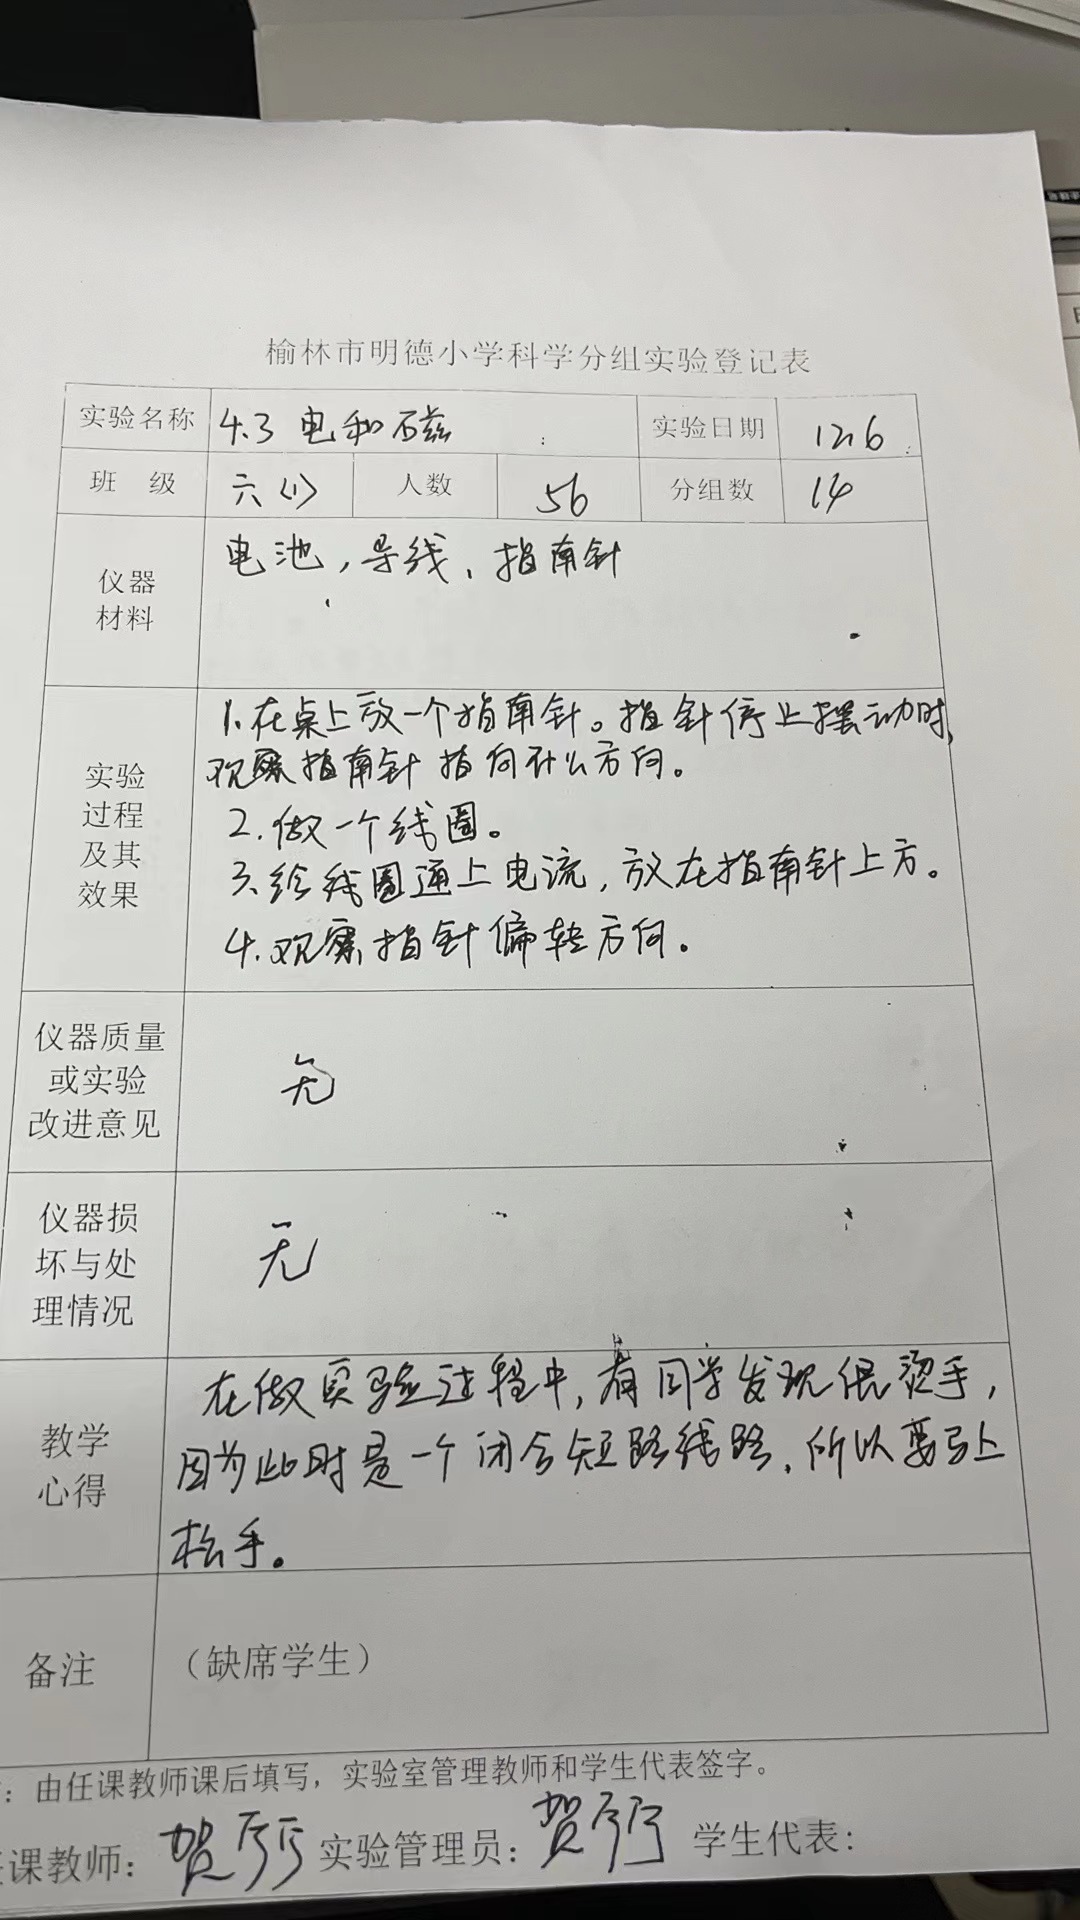 榆林市明德小学科学分组实验登记表
实验名称 4.3 电和磁 实验日期 12.6
班 级 六(1) 人数 56 分组数 14
仪器
材料
电池,导线、指南针
实验
过程
及其
效果
1.在桌上放一个指南针。指针停止摆动时,
观察指南针指向什么方向。
2.做一个线圈。
3、给线圈通上电流,放在指南针上方。
4.观察指针偏转方向。
仪器质量
或实验
改进意见
无
仪器损
坏与处
理情况
无
教学
心得
在做实验过程中,有同学发现很烫手,
因为此时是一个闭合短路线路,所以要马上
松手。
备注
(缺席学生)
:由任课教师课后填写,实验室管理教师和学生代表签字。
课教师: 贺 实验管理员: 贺 学生代表: